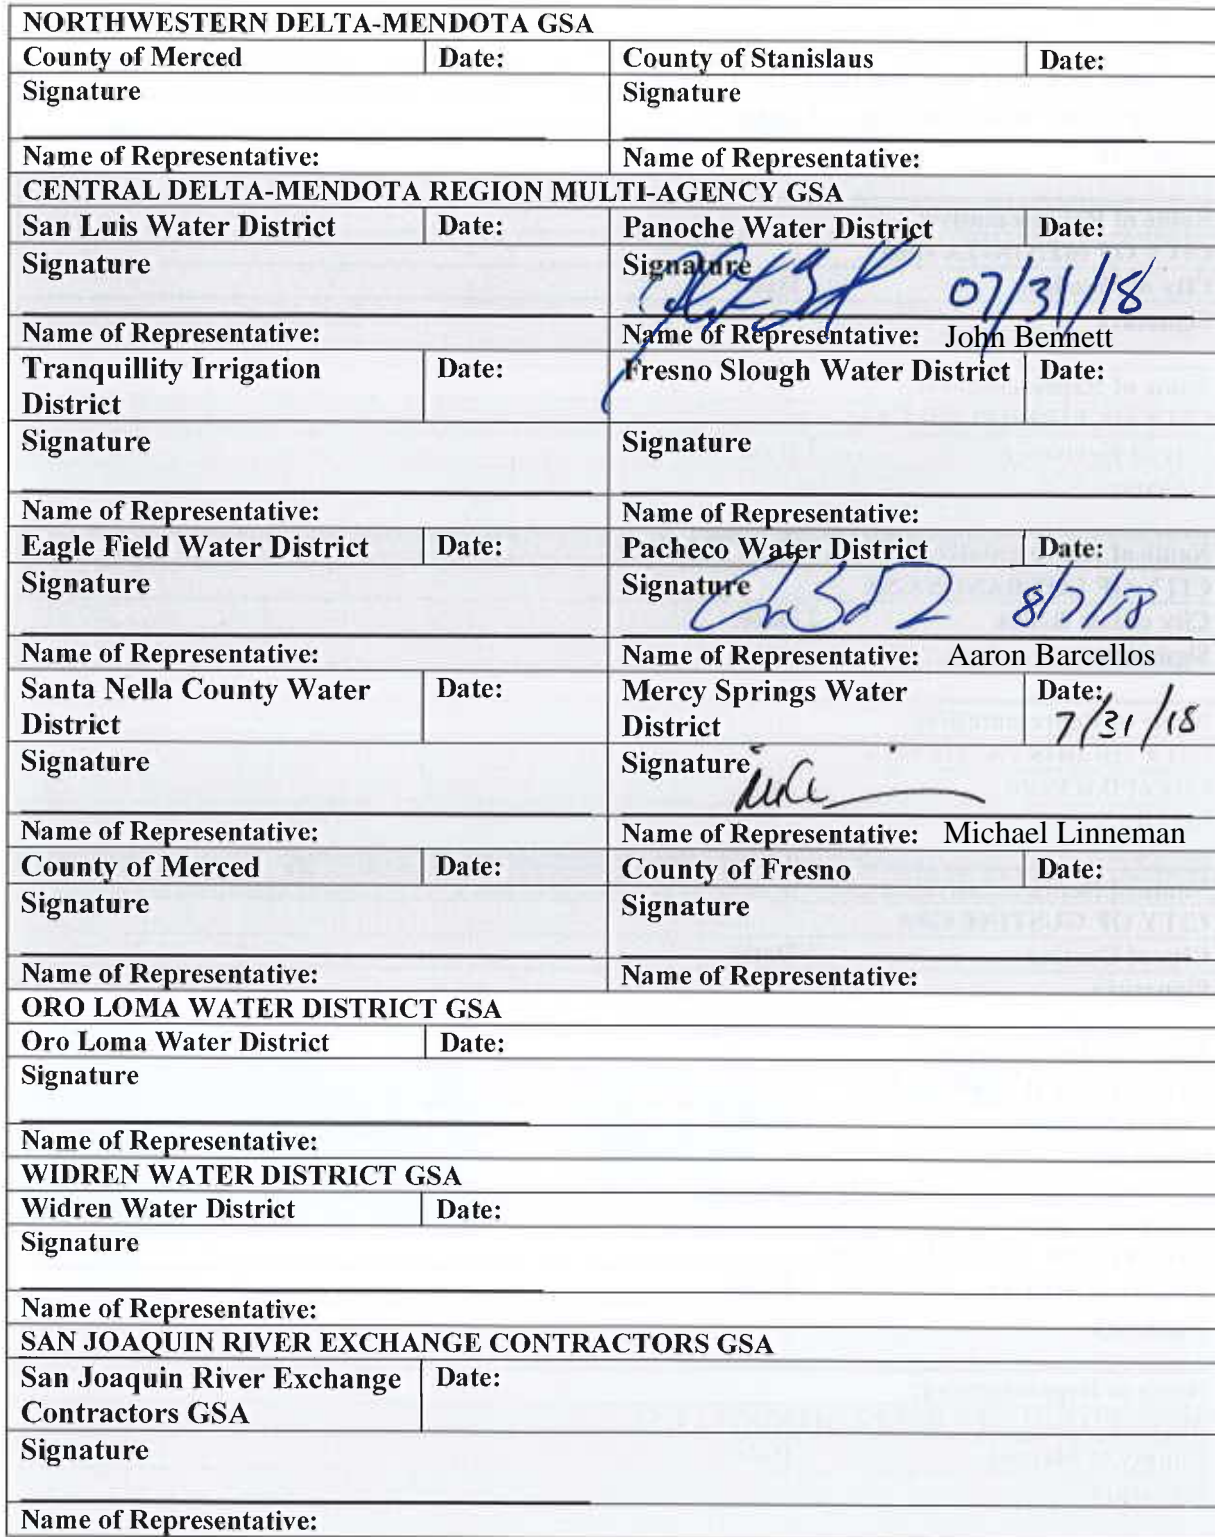 NORTHWESTERN DELTA-MENDOTA GSA
County of Merced Date: County of Stanislaus Date:
Signature Signature
Name of Representative: Name of Representative:
CENTRAL DELTA-MENDOTA REGION MULTI-AGENCY GSA
San Luis Water District Date: Panoche Water District Date:
Signature Signature 07/31/18
Name of Representative: Name of Representative: John Bennett
Tranquillity Irrigation Date: Fresno Slough Water District Date:
District
Signature Signature
Name of Representative: Name of Representative:
Eagle Field Water District Date: Pacheco Water District Date:
Signature Signature 8/7/18
Name of Representative: Name of Representative: Aaron Barcellos
Santa Nella County Water Date: Mercy Springs Water Date:
District District 7/31/18
Signature Signature
Name of Representative: Name of Representative: Michael Linneman
County of Merced Date: County of Fresno Date:
Signature Signature
Name of Representative: Name of Representative:
ORO LOMA WATER DISTRICT GSA
Oro Loma Water District Date:
Signature
Name of Representative:
WIDREN WATER DISTRICT GSA
Widren Water District Date:
Signature
Name of Representative:
SAN JOAQUIN RIVER EXCHANGE CONTRACTORS GSA
San Joaquin River Exchange Date:
Contractors GSA
Signature
Name of Representative: